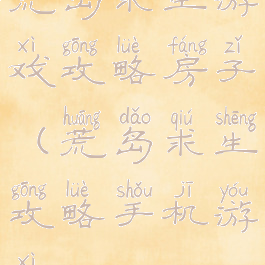 荒岛求生游
xì gōng lüè fáng zǐ
戏攻略房子
huāng dǎo qiú shēng
（荒岛求生
gōng lüè shǒu jī yóu
攻略手机游
xì